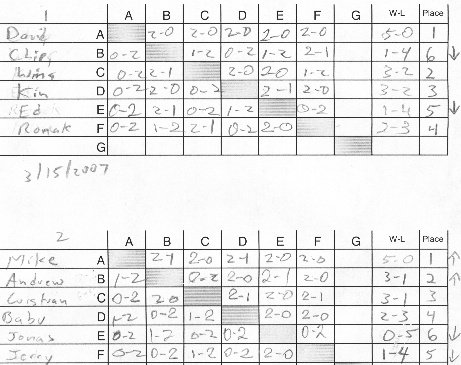 1 A B C D E F G W-L Place
David A 2-0 2-0 2-0 2-0 2-0 5-0 1
B 0-2 1-2 0-2 1-2 2-1 1-4 6 ↓
C 0-2 2-1 2-0 2-0 1-2 3-2 2
Kin D 0-2 2-0 0-2 2-1 2-0 3-2 3
Ed E 0-2 2-1 0-2 1-2 0-2 1-4 5 ↓
Roman F 0-2 1-2 2-1 0-2 2-0 2-3 4
G
3/15/2007
2 A B C D E F G W-L Place
Mike A 2-1 2-0 2-1 2-0 2-0 5-0 1 ↑
Andrew B 1-2 0-2 2-0 2-1 2-0 3-1 2 ↑
Cristian C 0-2 2-0 2-1 2-0 2-1 3-1 3
Baby D 1-2 0-2 1-2 2-0 2-0 2-3 4
Jonas E 0-2 1-2 0-2 0-2 0-2 0-5 6 ↓
Jerry F 0-2 0-2 1-2 0-2 2-0 1-4 5 ↓